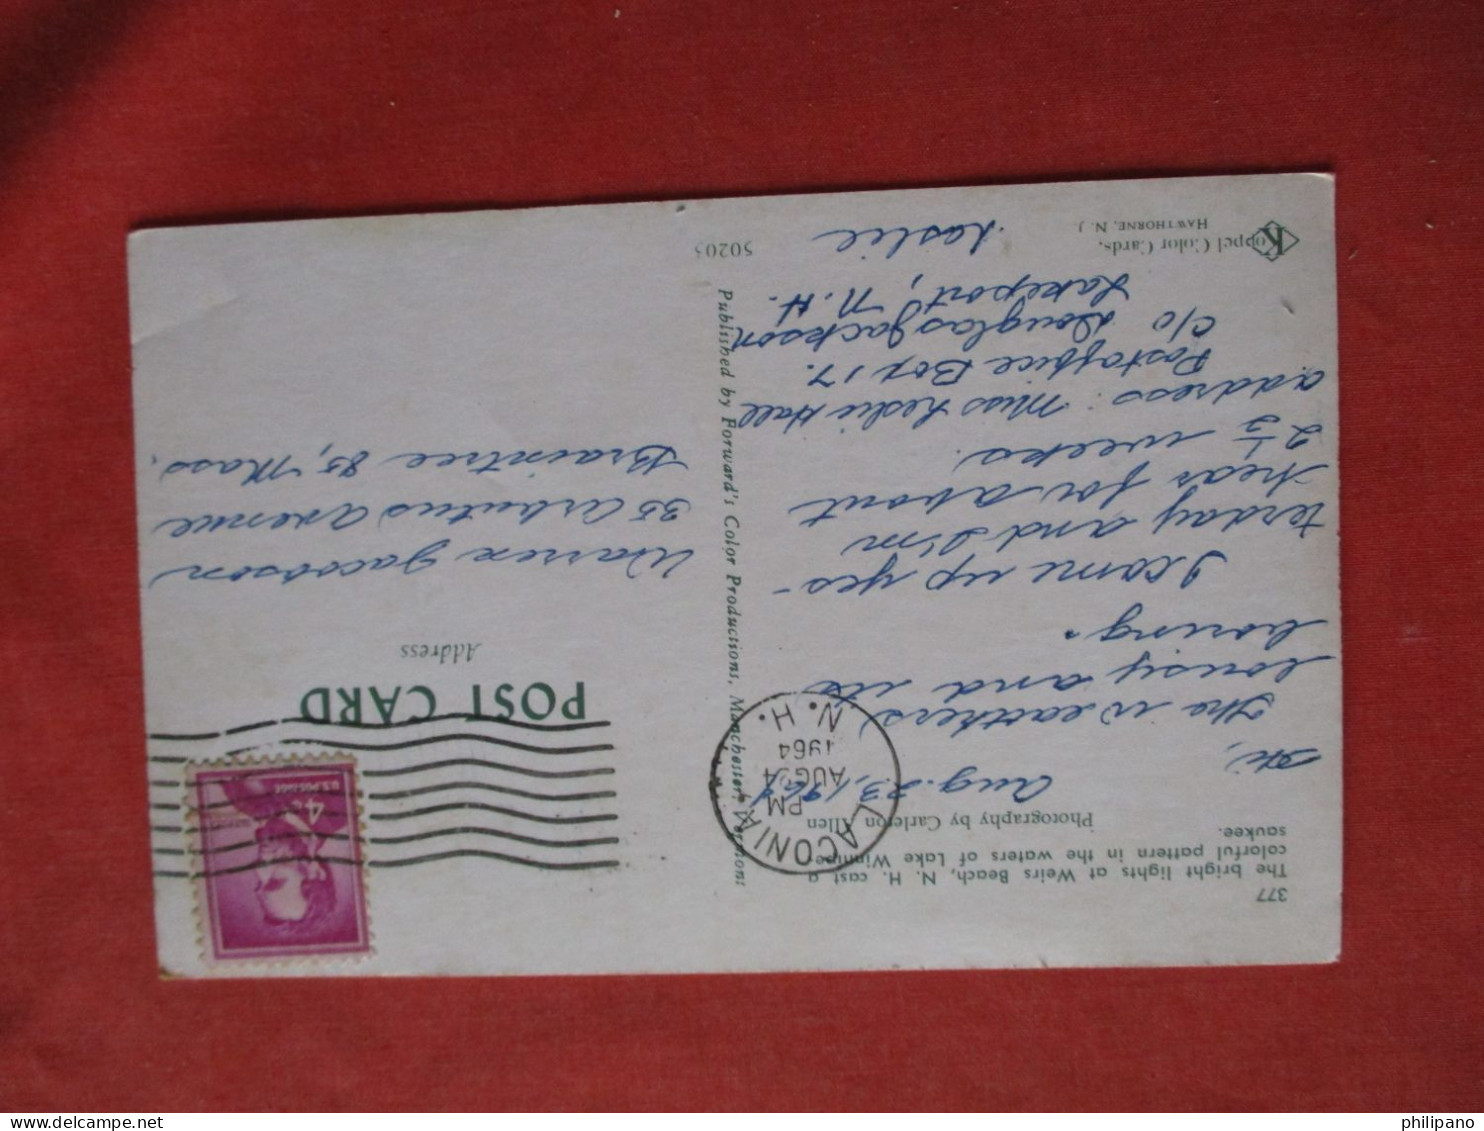 377
The bright lights at Weirs Beach, N. H. cast a
colorful pattern in the waters of Lake Winnipe-
saukee.
Photography by Carleton Allen
Aug. 23, 1964
Hi,
The weather's
lousy and its
boring.
I come up yes-
terday and I'm
hear for about
2 1/2 weeks.
address: Miss Leslie Hall
Postoffice Box 17.
c/o Douglas Jackson
Lakeport, N.H.
Leslie
Koppel Color Cards,
HAWTHORNE, N. J.
50205
Published by Forward's Color Productions, Manchester, Vermont
LACONIA
PM
AUG 24
1964
N. H.
4¢
U.S. POSTAGE
POST CARD
Address
Warren Jacobson
35 Arbutus Avenue
Braintree 85, Mass.
delcampe.net
philipano